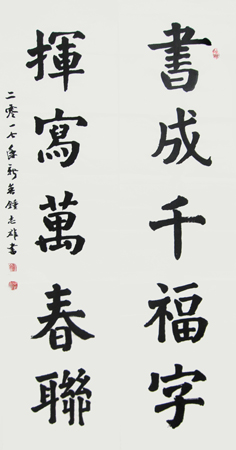 書成千福字
揮寫萬春聯
二零一七年新英鍾志雄書